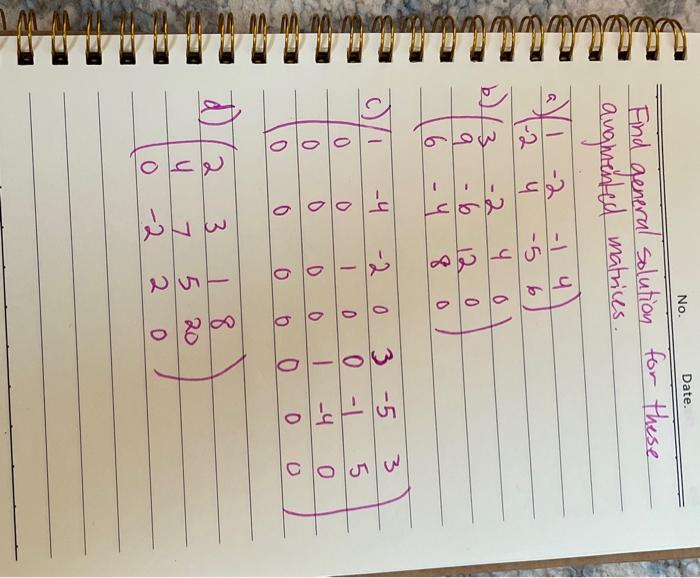 No.
Date.
Find general solution for these
augmented matrices.
a) ( 1 -2 -1 4 )
( -2 4 -5 6 )
b) ( 3 -2 4 0 )
( 9 -6 12 0 )
( 6 -4 8 0 )
c) ( 1 -4 -2 0 3 -5 3 )
( 0 0 1 0 0 -1 5 )
( 0 0 0 0 1 -4 0 )
( 0 0 0 0 0 0 0 )
d) ( 2 3 1 8 )
( 4 7 5 20 )
( 0 -2 2 0 )